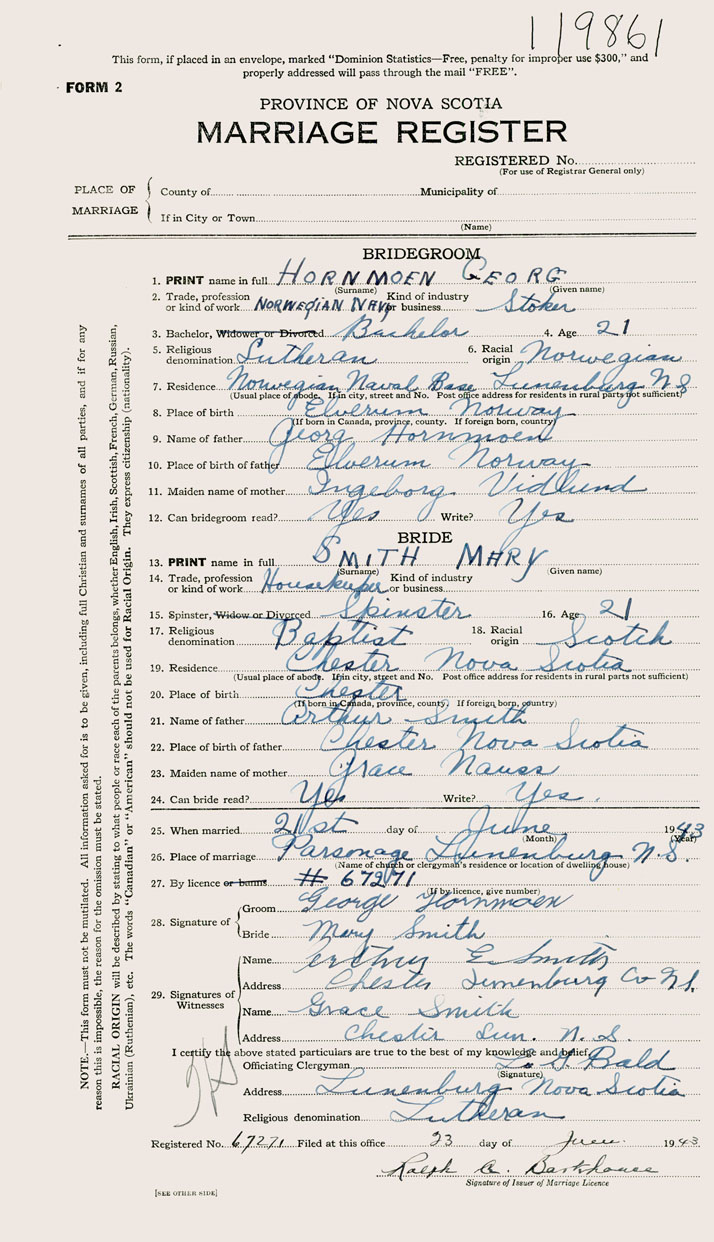 119861
This form, if placed in an envelope, marked “Dominion Statistics—Free, penalty for improper use $300,” and
properly addressed will pass through the mail “FREE”.
FORM 2
PROVINCE OF NOVA SCOTIA
MARRIAGE REGISTER
REGISTERED No.
(For use of Registrar General only)
PLACE OF
MARRIAGE
County of Municipality of
If in City or Town
(Name)
BRIDEGROOM
1. PRINT name in full HORNMOEN GEORG
(Surname) (Given name)
2. Trade, profession or kind of work NORWEGIAN NAVY Kind of industry or business Stoker
3. Bachelor, Widower or Divorced Bachelor 4. Age 21
5. Religious denomination Lutheran 6. Racial origin Norwegian
7. Residence Norwegian Naval Base Lunenburg N.S
(Usual place of abode. If in city, street and No. Post office address for residents in rural parts not sufficient)
8. Place of birth Elverum Norway
(If born in Canada, province, county. If foreign born, country)
9. Name of father Georg Hornmoen
10. Place of birth of father Elverum Norway
11. Maiden name of mother Ingeborg Vidlund
12. Can bridegroom read? Yes Write? Yes
BRIDE
13. PRINT name in full SMITH MARY
(Surname) (Given name)
14. Trade, profession or kind of work Housekeeper Kind of industry or business
15. Spinster, Widow or Divorced Spinster 16. Age 21
17. Religious denomination Baptist 18. Racial origin Scotch
19. Residence Chester Nova Scotia
(Usual place of abode. If in city, street and No. Post office address for residents in rural parts not sufficient)
20. Place of birth Chester
(If born in Canada, province, county. If foreign born, country)
21. Name of father Arthur Smith
22. Place of birth of father Chester Nova Scotia
23. Maiden name of mother Grace Nauss
24. Can bride read? Yes Write? Yes.
25. When married 21st day of June 1943
(Month) (Year)
26. Place of marriage Parsonage Lunenburg N.S.
(Name of church or clergyman's residence or location of dwelling house)
27. By licence or banns # 67271
(If by licence, give number)
28. Signature of
Groom George Hornmoen
Bride Mary Smith
29. Signatures of Witnesses
Name Arthur E. Smith
Address Chester Lunenburg Co N.S.
Name Grace Smith
Address Chester Lun. N.S.
I certify the above stated particulars are true to the best of my knowledge and belief.
Officiating Clergyman Bald
(Signature)
Address Lunenburg Nova Scotia
Religious denomination Lutheran
Registered No. 67271 Filed at this office 23 day of June 1943
Ralph A. Barkhouse
Signature of Issuer of Marriage Licence
[SEE OTHER SIDE]
NOTE.—This form must not be mutilated. All information asked for is to be given, including full Christian and surnames of all parties, and if for any
reason this is impossible, the reason for the omission must be stated.
RACIAL ORIGIN will be described by stating to what people or race each of the parents belongs, whether English, Irish, Scottish, French, German, Russian,
Ukrainian (Ruthenian), etc. The words “Canadian” or “American” should not be used for Racial Origin. They express citizenship (nationality).